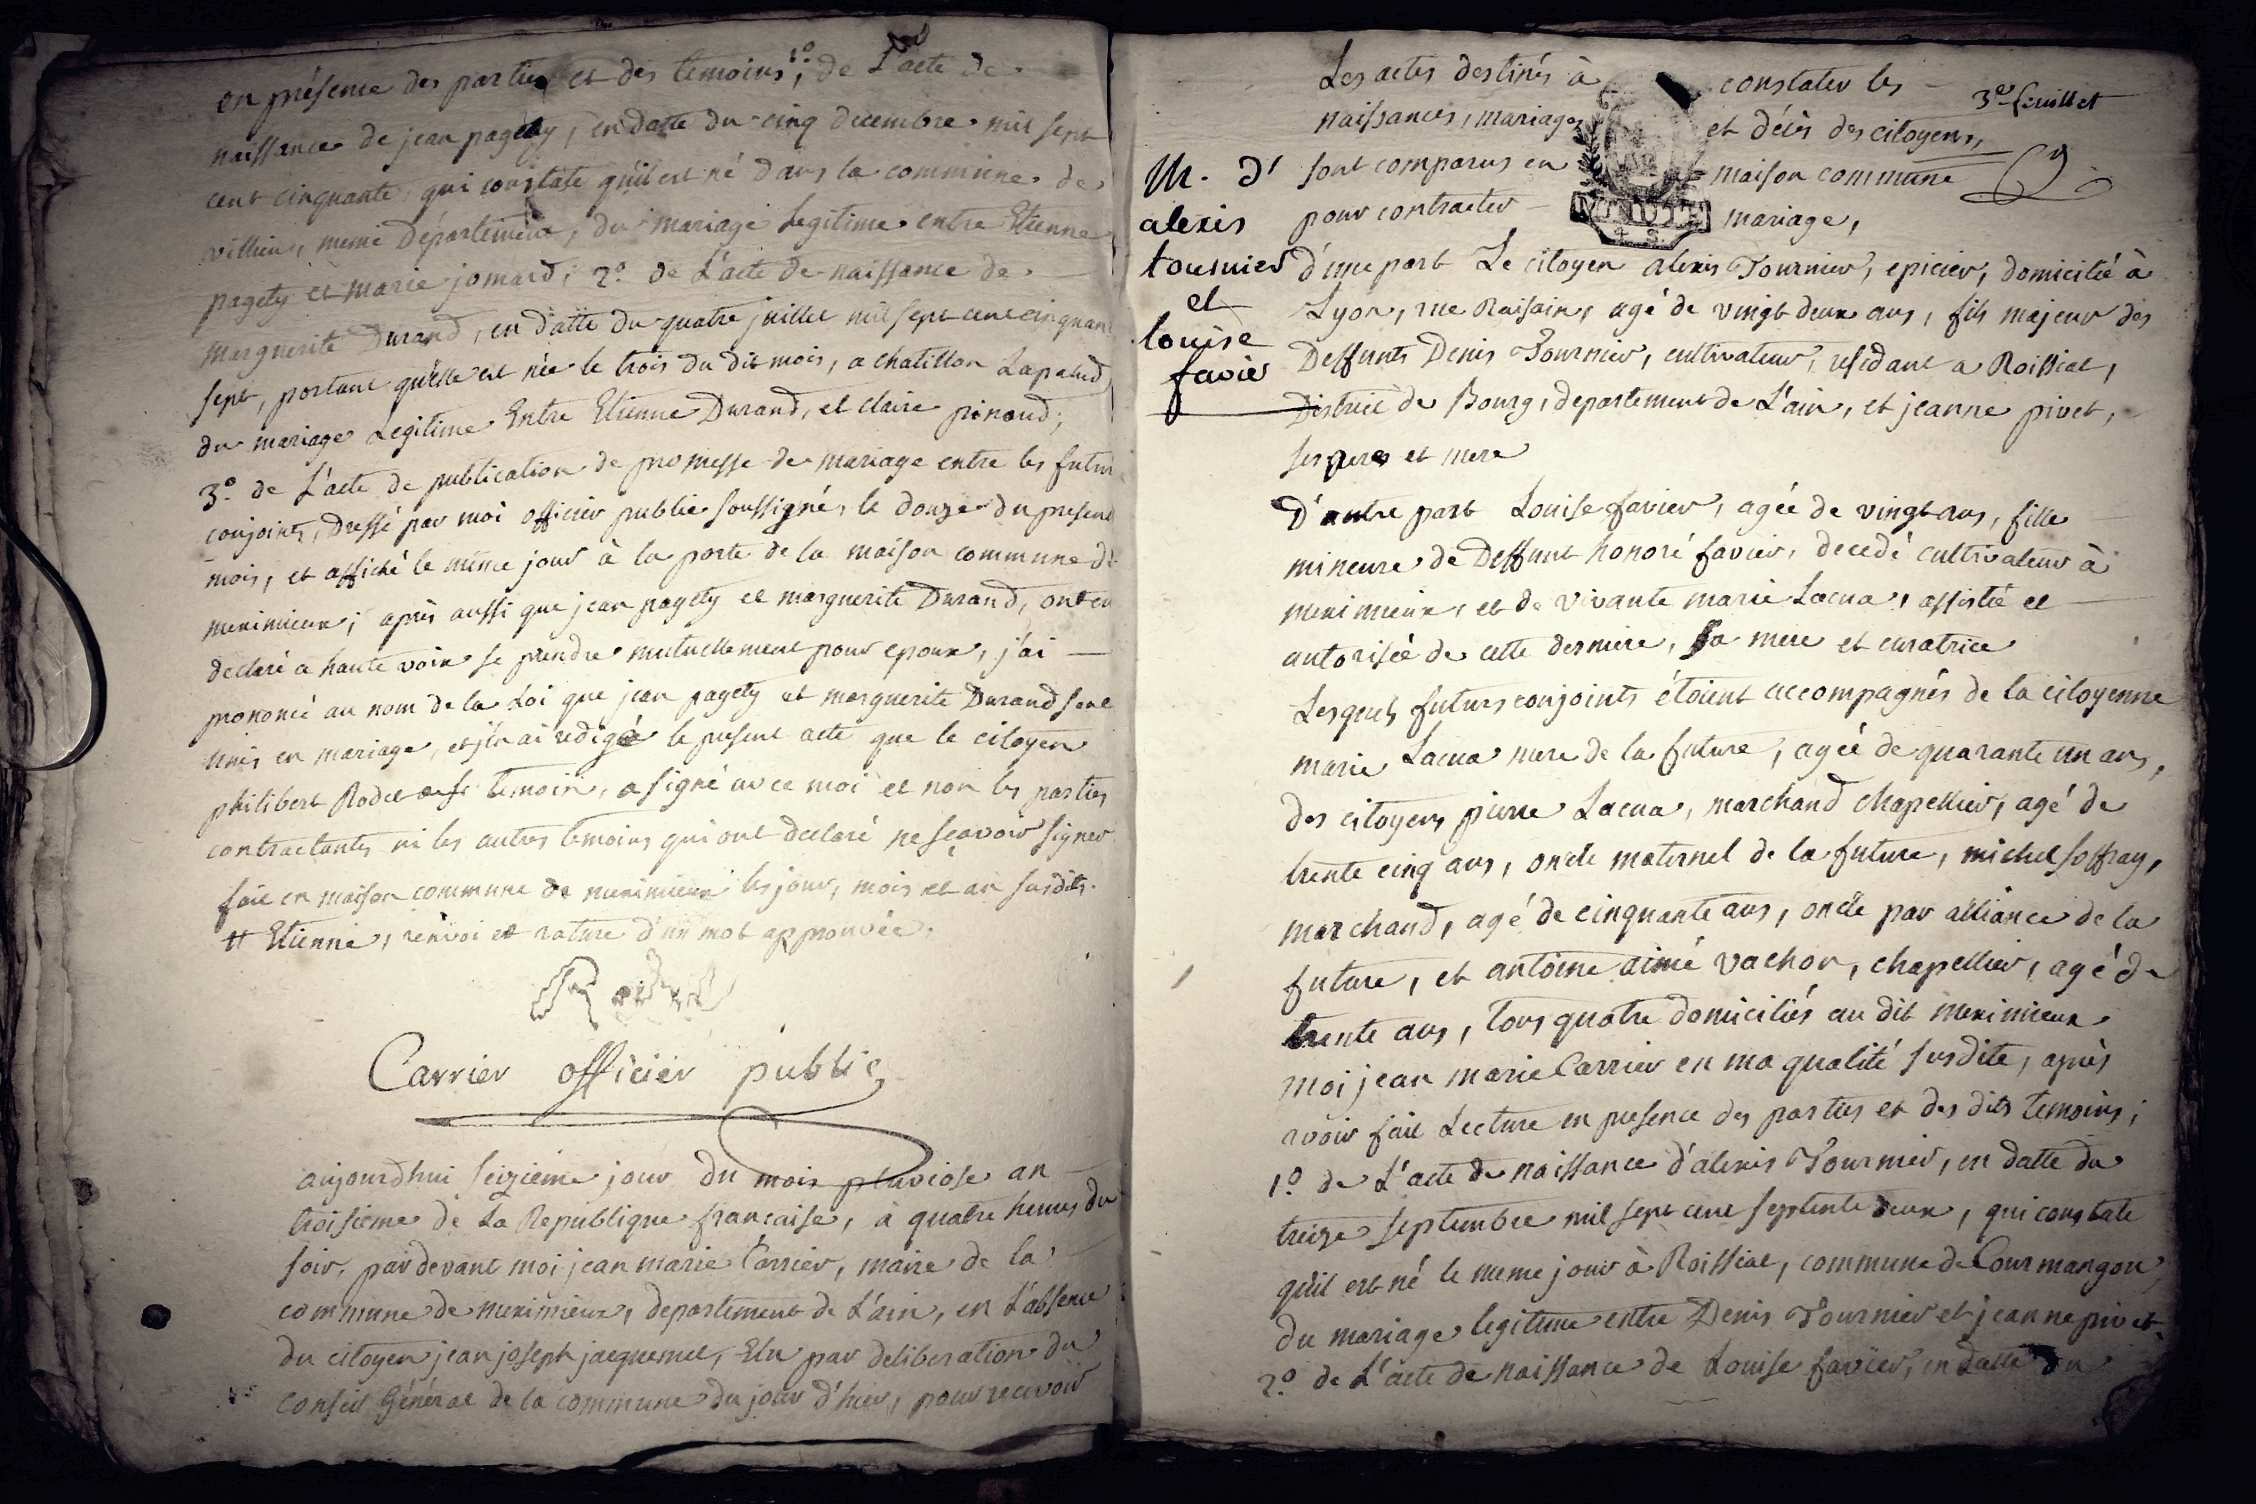 en présence des parties et des temoins, 1º. de L'acte de
naissance de jean pagety, en datte du cinq decembre mil sept
cent cinquante, qui constate qu'il est né dans la commune de
villieu, meme Département, du mariage Legitime entre Etienne
pagety et marie jomard; 2º. de L'acte de naissance de
marguerite Durand, en datte du quatre juillet mil sept cent cinquante
sept, portant qu'elle est née le trois du dit mois, a chatillon Lapalud,
du mariage Legitime Entre Etienne Durand, et claire pinond;
3º. de L'acte de publication de promesse de mariage entre les futur
conjoints, Dressé par moi officier public soussigné, le douze du present
mois, et affiché le même jour à la porte de la maison commune de
meximieux; après aussi que jean pagety et marguerite Durand, ont eu
declaré a haute voix se prendre mutuellement pour epoux, j'ai
prononcé au nom de la Loi que jean pagety et marguerite Durand sont
unis en mariage, et j'en ai redigé le present acte que le citoyen
philibert Rodet temoin, a signé avec moi et non les parties
contractantes ni les autres temoins qui ont declaré ne sçavoir signer
fait en maison commune de meximieux les jour, mois et an susdits.
# Etienne, renvoi et rature d'un mot approuvée.
Rodet
Carrier officier public
aujourdhui seizieme jour du mois pluviose an
troisieme de La Republique française, à quatre heures du
soir, pardevant moi jean marie Carrier, maire de la
commune de meximieux, departement de L'ain, en L'absence
du citoyen jean joseph jacquemet, Elu par deliberation du
conseil Général de la commune du jour d'hier, pour recevoir
3e. feuillet
Les actes destinés à constater les
naissances, mariages et décès des citoyens,
sont comparus en maison commune
pour contracter mariage,
M. d'
alexis
tournier
et
louise
favier
d'une part Le citoyen alexis Tournier, epicier, domicilié à
Lyon, rue Raisin, agé de vingt deux ans, fils majeur des
Deffunts Denis Tournier, cultivateur, residant a Roissiat,
District de Bourg, departement de L'ain, et jeanne pivet,
ses peres et mere
D'autre part Louise favier, agée de vingt ans, fille
mineure de Deffunt honoré favier, decedé cultivateur à
meximieux, et de vivante marie Lacua, assistée et
autorisée de cette derniere, sa mere et curatrice
Lesquels futurs conjoints étoient accompagnés de la citoyenne
marie Lacua mere de la future, agée de quarante un ans,
des citoyens pierre Lacua, marchand chapellier, agé de
trente cinq ans, oncle maternel de la future, michel soffray,
marchand, agé de cinquante ans, oncle par alliance de la
future, et antoine aimé vachon, chapellier, agé de
trente ans, tous quatre domiciliés au dit meximieux
moi jean marie Carrier en ma qualité susdite, après
avoir fait Lecture en presence des parties et des dits temoins;
1º. de L'acte de naissance d'alexis Tournier, en datte du
treize septembre mil sept cent septente deux, qui constate
qu'il est né le meme jour à Roissiat, commune de Courmangou,
du mariage legitime entre Denis Tournier et jeanne pivet.
2º. de L'acte de naissance de Louise favier, en datte du